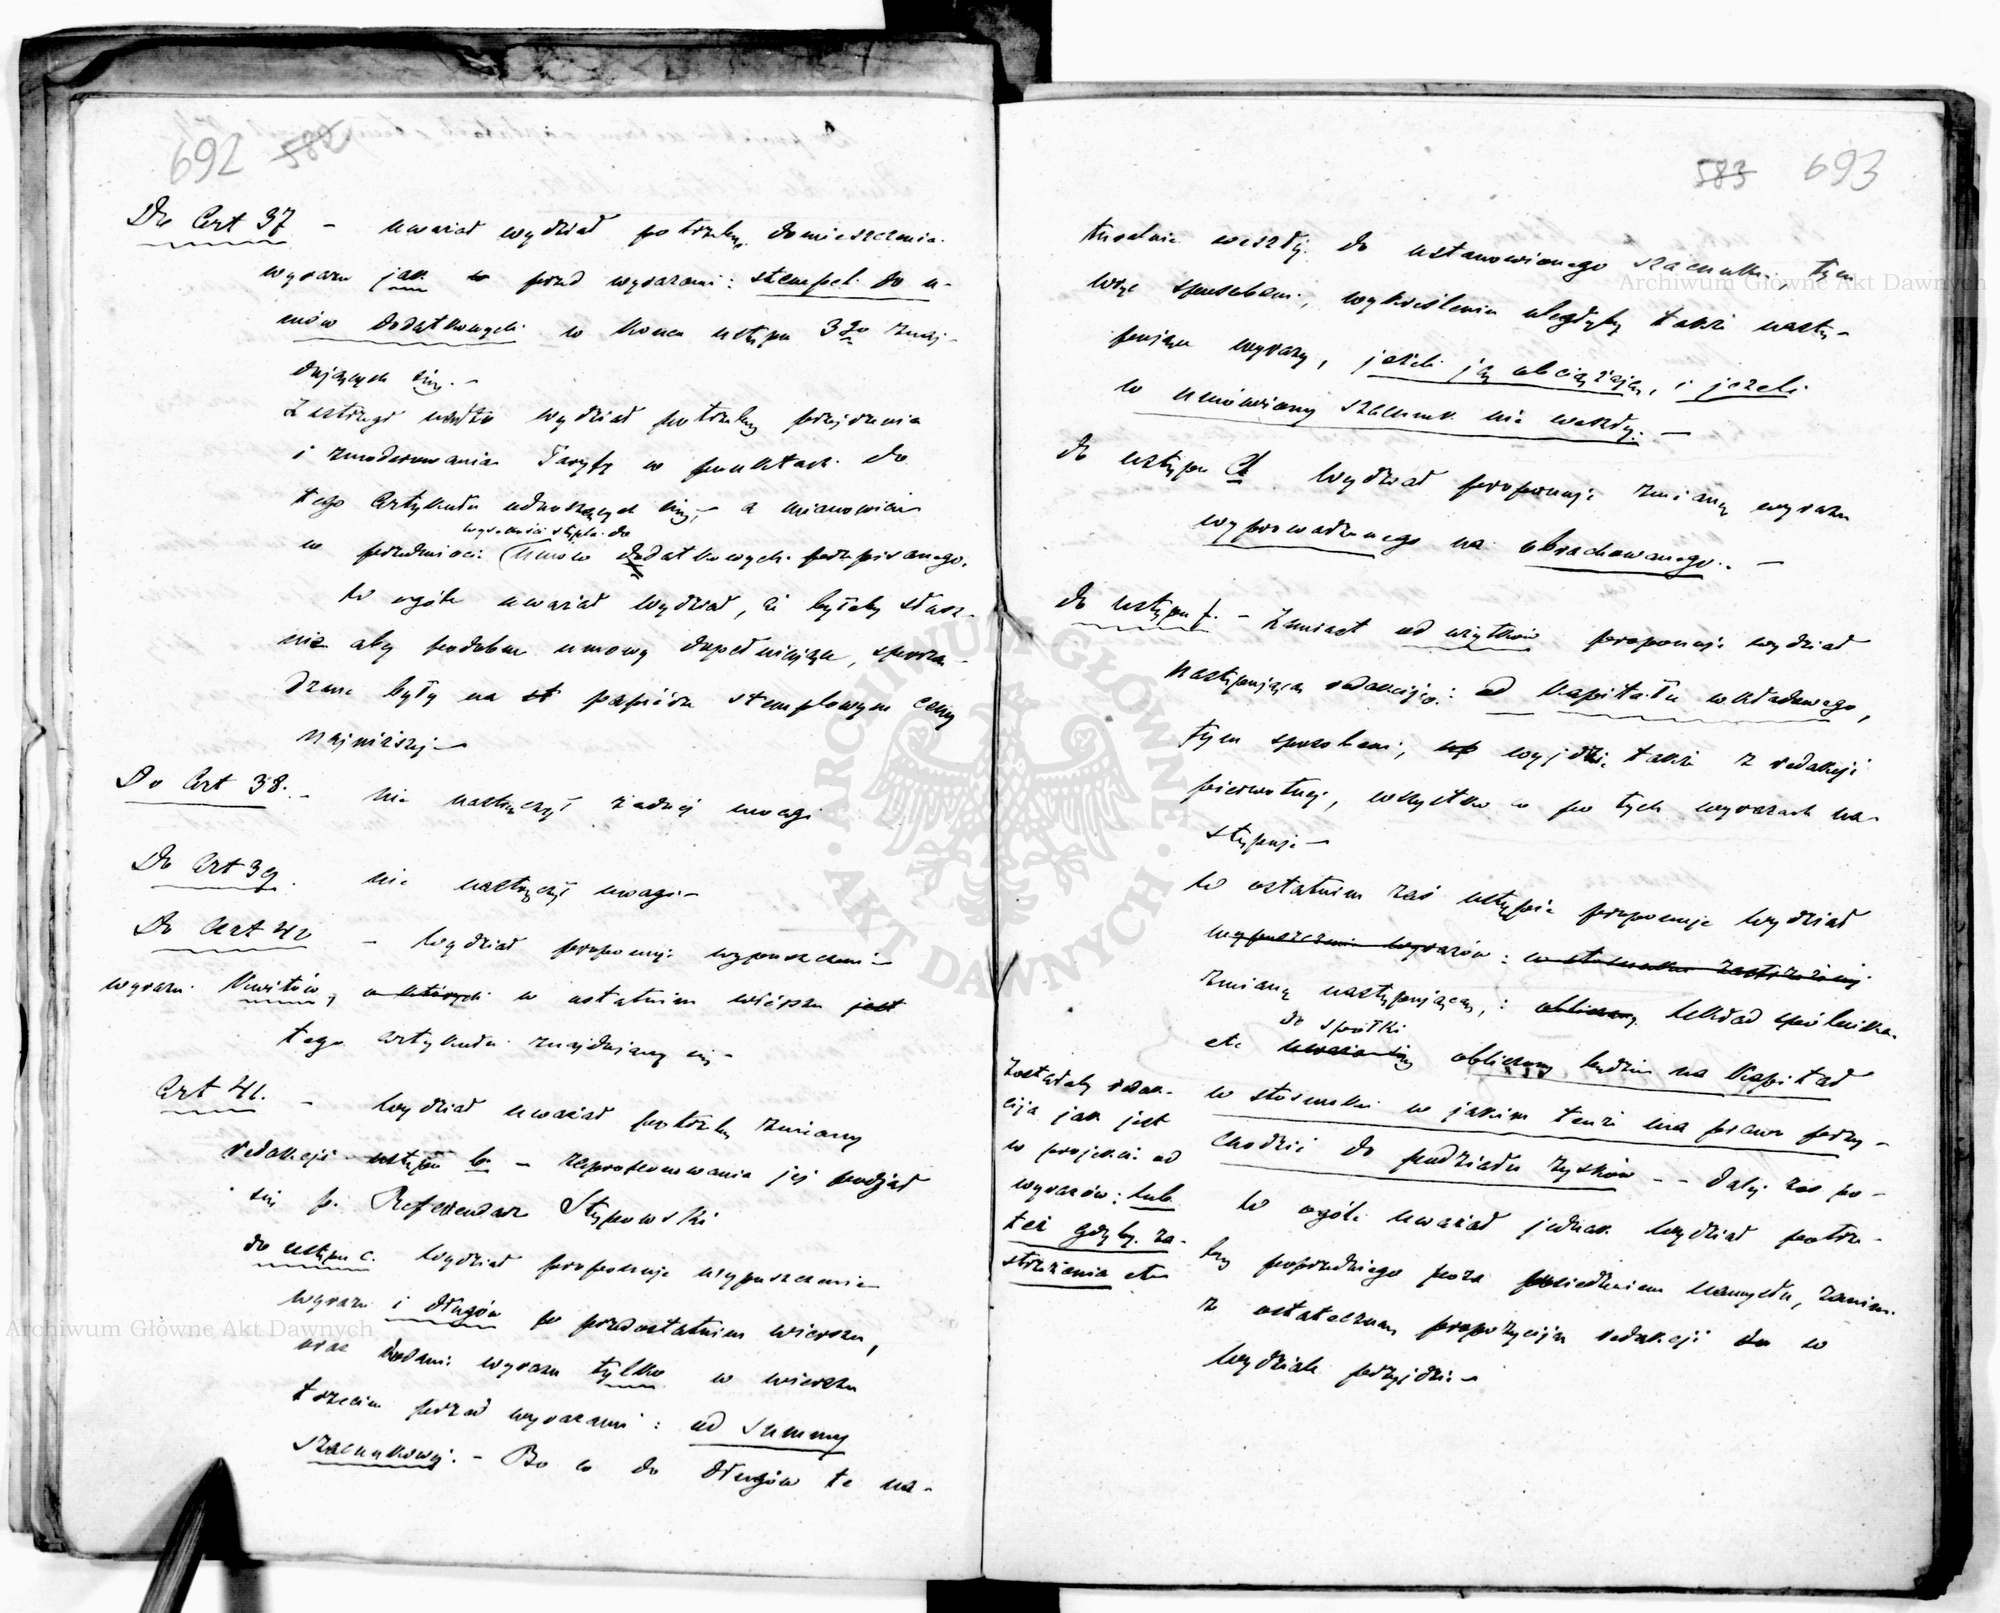 692 582
Do Art 37 – uważał wydział potrzebę domieszczenia
wyrazu jak w przed wyrazami: stempel do u-
mów dodatkowych w końcu ustępu 3go znaj-
dujących się. –
Zastrzegł nadto wydział potrzebę przejrzenia
i zmoderowania Taryfy w punktach do
tego Artykułu odnoszących się, – a mianowicie
wysokości stępla do
w przedmiocie umów dodatkowych przepisanego.
W ogóle uważał wydział, że byłoby słusz-
nie aby podobne umowy dopełniające, sporzą-
dzane były na st papierze stemplowym ceny
najniższej –
Do Art 38. – nie nastręczył żadnej uwagi
Do Art 39. nie nastręczył uwagi –
Do Art 40 – Wydział proponuje wypuszczenie
wyrazu Kwitów, o których w ostatnim wierszu jest
tego artykułu znajdujący się –
Art 41. – Wydział uważał potrzebę zmiany
redakcji ustępu b. – zaproponowania jej podjął
się p. Referendarz Stypowski
do ustępu c. Wydział proponuje wypuszczenie
wyrazu i długów po przedostatnim wierszu,
oraz dodanie wyrazu tylko w wierszu
trzecim przed wyrazami: od summy
szacunkowej. – Bo co do długów te na-
583 693
turalnie weszły do ustanowionego szacunku, tym
więc sposobem, wykreśleniu uległyby także nastę-
pujące wyrazy, jeżeli ją obciążają, i jeżeli
w umówiony szacunek nie weszły. –
do ustępu d. Wydział proponuje zmianę wyrazu
wyprowadzonego na obrachowanego. –
do ustępu f. – Zamiast od użytków proponuje wydział
następującą redakciję: od kapitału wkładowego,
tym sposobem, wyjdzie także z redakcji
pierwotnej, wszystko co po tych wyrazach na-
stępuje –
W ostatnim zaś ustępie proponuje Wydział
wypuszczenie wyrazów: w stosunku zastrzeżonej
zmianę następującą: obliczony Wkład spólnika
do spółki
etc uważanby obliczony będzie na Kapitał
w stosunku w jakim tenże ma prawo przy-
chodzić do podziału zysków – – Dalej zaś po-
Zostałaby redak-
cija jak jest
w projekcie od
wyrazów: lub
też gdyby za-
strzeżenia etc
W ogóle uważał jednak Wydział potrze-
bę poprzedniego poza posiedzeniem namysłu, zanim
z ostateczną propozycija redakcji do w
Wydziale przyjdzie –
Archiwum Główne Akt Dawnych
Archiwum Główne Akt Dawnych
ARCHIWUM GŁÓWNE · AKT DAWNYCH ·